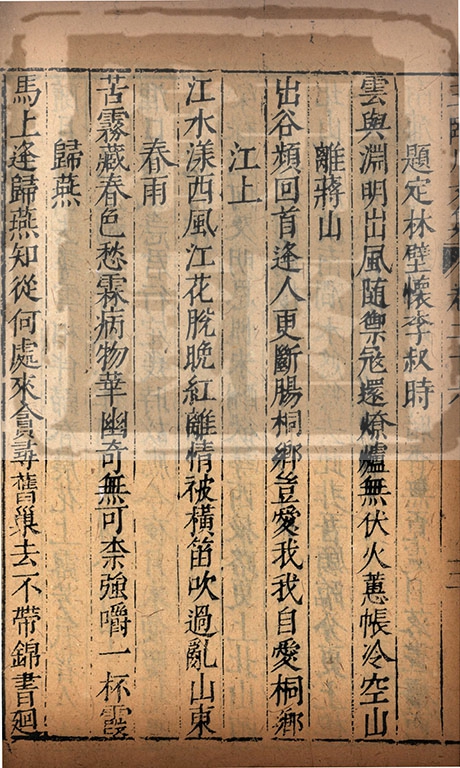 題定林壁懷李叔時
雲與淵明出風随禦寇還燎爐無伏火蕙帳冷空山
離蔣山
出谷頻回首逢人更斷腸桐鄉豈愛我我自愛桐鄉
江上
江水漾西風江花脫晚紅離情被橫笛吹過亂山東
春雨
苦霧藏春色愁霖病物華幽奇無可柰強嚼一杯霞
歸燕
馬上逢歸燕知從何處來貪尋舊巢去不帶錦書廻